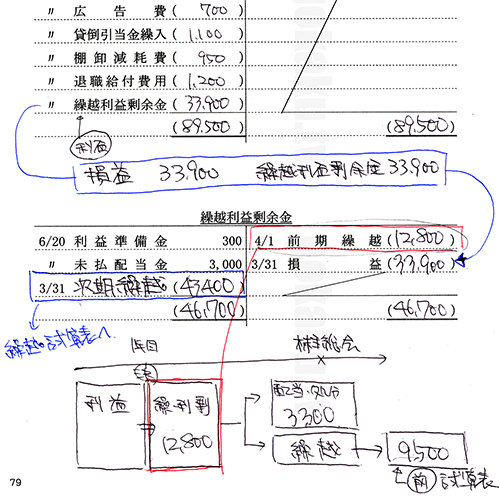 〃 広告費 ( 700 )
〃 貸倒引当金繰入 ( 1,100 )
〃 棚卸減耗費 ( 950 )
〃 退職給付費用 ( 1,200 )
〃 繰越利益剰余金 ( 33,900 )
( 89,500 ) ( 89,500 )
利益
損益 33,900 繰越利益剰余金 33,900
繰越利益剰余金
6/20 利益準備金 300 4/1 前期繰越 ( 12,800 )
〃 未払配当金 3,000 3/31 損益 ( 33,900 )
3/31 次期繰越 ( 43,400 )
( 46,700 ) ( 46,700 )
繰越試算表へ
1年目 株主総会
利益 繰利剰 12,800
配当・処分 3,300
繰越 9,500
前 試算表
79